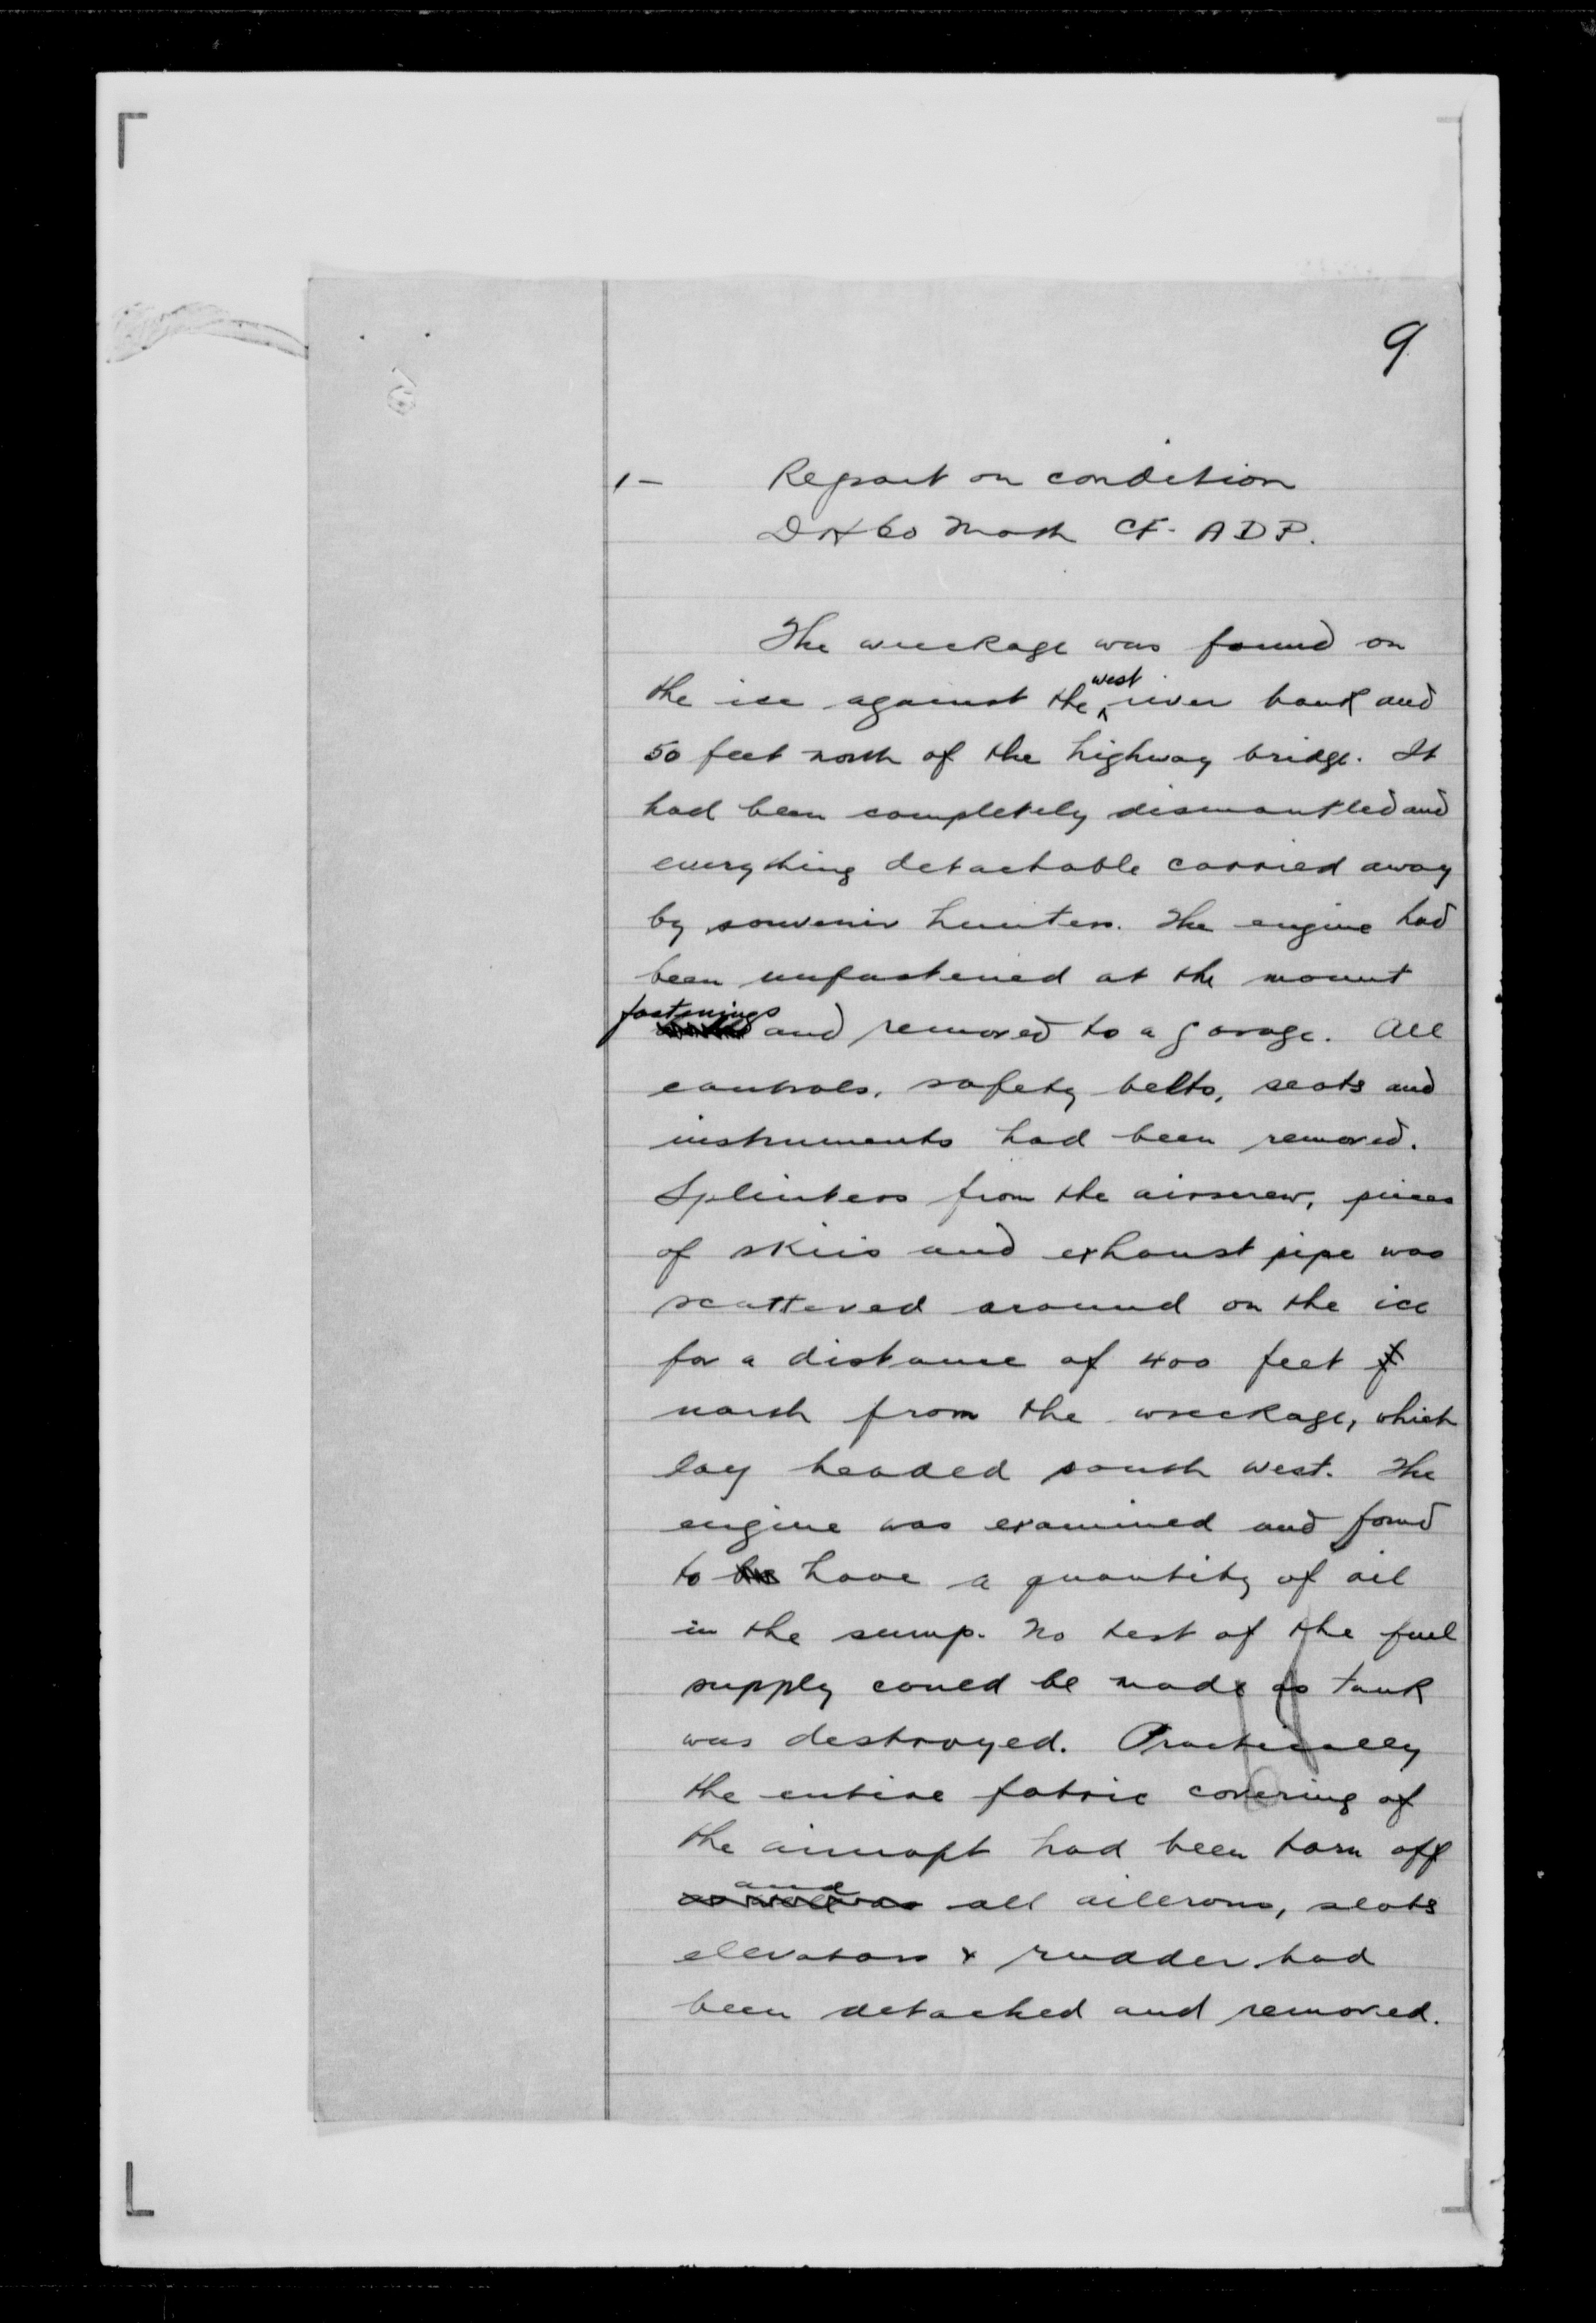 9
1- Report on condition
DH 60 Moth CF-ADP.
The wreckage was found on
the ice against the west river bank and
50 feet north of the highway bridge. It
had been completely dismantled and
everything detachable carried away
by souvenir hunters. The engine had
been unfastened at the mount
fastenings and removed to a garage. All
controls, safety belts, seats and
instruments had been removed.
Splinters from the airscrew, pieces
of skiis and exhaust pipe was
scattered around on the ice
for a distance of 400 feet
north from the wreckage, which
lay headed south west. The
engine was examined and found
to have a quantity of oil
in the sump. No test of the fuel
supply could be made as tank
was destroyed. Practically
the entire fabric covering of
the aircraft had been torn off
and all ailerons, slots
elevators & rudder had
been detached and removed.